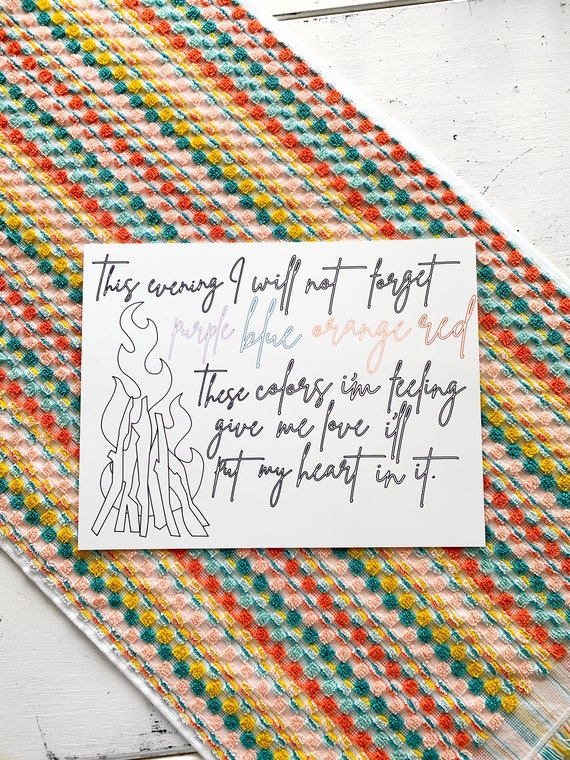 This evening I will not forget
purple blue orange red
These colors i'm feeling
give me love i'll
put my heart in it.